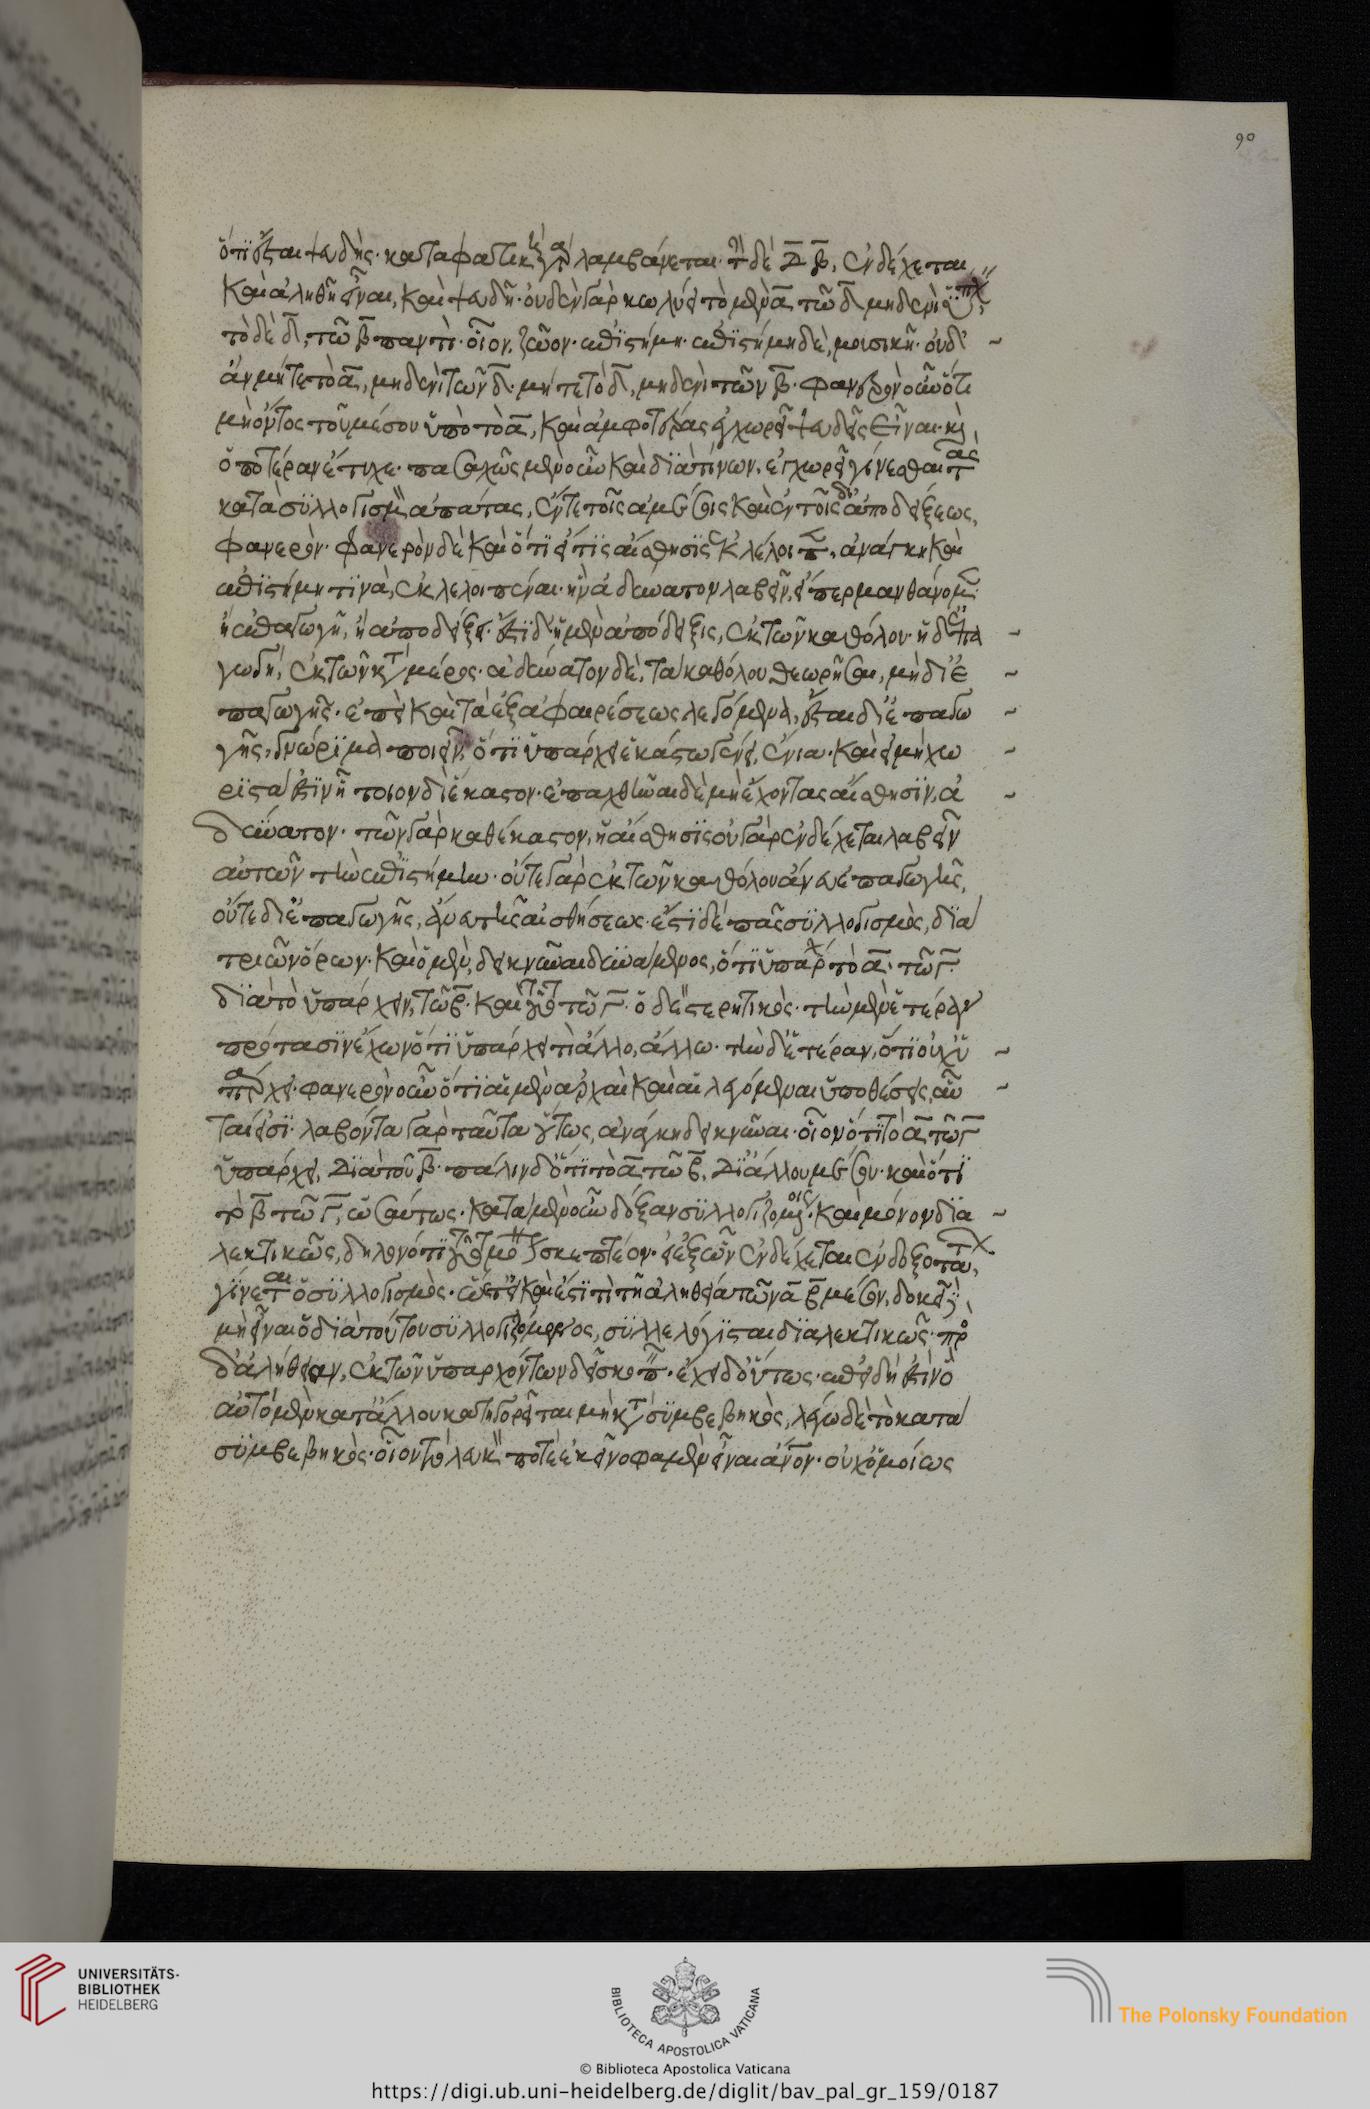 ὅτι ἔσται ψευδής· καταφατικὴ γὰρ λαμβάνεται· τὴν δὲ Δ Β, ἐνδέχεται
καὶ ἀληθῆ εἶναι, καὶ ψευδῆ· οὐδὲν γὰρ κωλύει τὸ μὲν Α τῷ Δ μηδενὶ ὑπάρχειν,
τὸ δὲ Δ, τῷ Β παντὶ· οἷον, ζῷον· ἐπιστήμη· ἐπιστήμη δὲ, μουσικῇ· οὐδ' ~
ἂν μήτε τὸ Α, μηδενὶ τῶν Δ· μήτε τὸ Δ, μηδενὶ τῶν Β· φανερὸν οὖν ὅτι
μὴ ὄντος τοῦ μέσου ὑπὸ τὸ Α, καὶ ἀμφοτέρας ἐγχωρεῖ ψευδεῖς εἶναι· καὶ
ὁποτέραν ἔτυχε· ποσαχῶς μὲν οὖν καὶ διὰ τίνων, ἐγχωρεῖ γίνεσθαι τὰς
κατὰ συλλογισμὸν ἀπάτας, ἔν τε τοῖς ἀμέσοις καὶ ἐν τοῖς δι' ἀποδείξεως,
φανερὸν· φανερὸν δὲ καὶ ὅτι εἴ τις αἴσθησις ἐκλέλοιπεν, ἀνάγκη καὶ
ἐπιστήμη τινὰ, ἐκλελοιπέναι· ἣν ἀδύνατον λαβεῖν, εἴπερ μανθάνομεν
ἢ ἐπαγωγῇ, ἢ ἀποδείξει· ἔστι δ' ἡ μὲν ἀπόδειξις, ἐκ τῶν καθόλου· ἡ δ' ἐπα ~
γωγὴ, ἐκ τῶν κατὰ μέρος· ἀδύνατον δὲ, τὰ καθόλου θεωρῆσαι, μὴ δι' ἐ ~
παγωγῆς· ἐπεὶ καὶ τὰ ἐξ ἀφαιρέσεως λεγόμενα, ἔσται δι' ἐπαγω ~
γῆς, γνώριμα ποιεῖν, ὅτι ὑπάρχει ἑκάστω γένει, ἔνια· καὶ εἰ μὴ χω ~
ριστὰ ἐστὶν ἧ τοιονδὶ ἕκαστον· ἐπαχθῆναι δὲ μὴ ἔχοντας αἴσθησιν, ἀ ~
δύνατον· τῶν γὰρ καθέκαστον, ἡ αἴσθησις οὐ γὰρ ἐνδέχεται λαβεῖν
αὐτῶν τὴν ἐπιστήμην· οὔτε γὰρ ἐκ τῶν καθόλου ἄνευ ἐπαγωγῆς,
οὔτε δι' ἐπαγωγῆς, ἄνευ τῆς αἰσθήσεως· ἔστι δὲ πᾶς συλλογισμὸς, διὰ
τριῶν ὅρων· καὶ ὁ μὲν, δεικνύναι δυνάμενος, ὅτι ὑπάρχει τὸ Α· τῷ Γ·
διὰ τὸ ὑπάρχειν, τῷ Β· καὶ τοῦτο τῷ Γ· ὁ δὲ στερητικὸς· τὴν μὲν ἑτέραν
πρότασιν ἔχων ὅτι ὑπάρχει τὶ ἄλλο, ἄλλω· τὴν δ' ἑτέραν, ὅτι οὐχ ὑ ~
πάρχει· φανερὸν οὖν ὅτι αἱ μὲν ἀρχαὶ καὶ αἱ λεγόμεναι ὑποθέσεις, αὗ ~
ταί εἰσι· λαβόντα γὰρ ταῦτα οὕτως, ἀνάγκη δεικνύναι· οἷον ὅτι τὸ Α τῷ Γ
ὑπάρχει, διὰ τοῦ Β· πάλιν δ' ὅτι τὸ Α τῷ Β, δι' ἄλλου μέσου· καὶ ὅτι
τὸ Β τῷ Γ, ὡσαύτως· κατὰ μὲν οὖν δόξαν συλλογιζομένοις· καὶ μόνον δια ~
λεκτικῶς, δῆλον ὅτι τοῦτο μόνον σκεπτέον· εἰ ἐξ ὧν ἐνδέχεται ἐνδοξοτάτων,
γίνεται ὁ συλλογισμὸς· ὥστ' εἰ καὶ ἔστι τὶ τῇ ἀληθεία τῶν Α Β μέσον, δοκεῖ δὲ
μὴ εἶναι ὁ διὰ τούτου συλλογιζόμενος, συλλελόγισται διαλεκτικῶς· πρὸς
δ' ἀλήθειαν, ἐκ τῶν ὑπαρχόντων δεῖ σκοπεῖν· ἔχει δ' οὕτως· ἐπειδὴ ἔστιν ὃ
αὐτὸ μὲν κατ' ἄλλου κατηγορεῖται μὴ κατὰ συμβεβηκὸς, λέγω δὲ τὸ κατὰ
συμβεβηκὸς· οἷον τὸ λευκόν ποτε ἐκεῖνο φαμὲν εἶναι ἄνον· οὐχ ὁμοίως
90
UNIVERSITÄTS-
BIBLIOTHEK
HEIDELBERG
BIBLIOTECA APOSTOLICA VATICANA
© Biblioteca Apostolica Vaticana
The Polonsky Foundation
https://digi.ub.uni-heidelberg.de/diglit/bav_pal_gr_159/0187